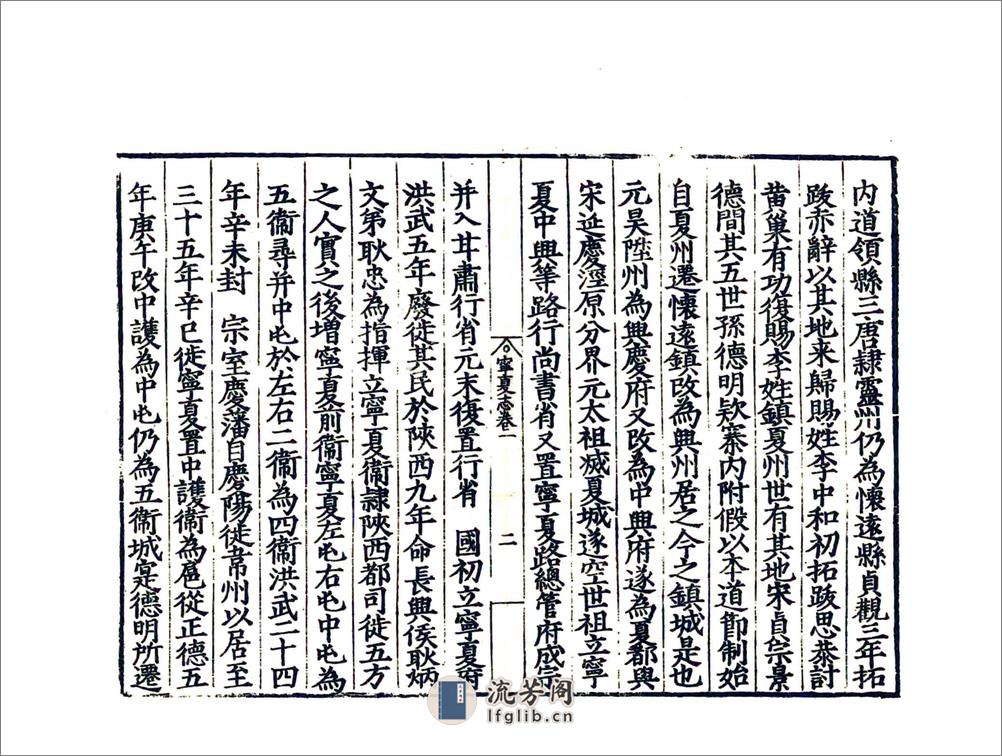 内道領縣三唐隸靈州仍為懷遠縣貞觀三年拓
跋赤辭以其地来歸賜姓李中和初拓跋思恭討
黃巢有功復賜李姓鎮夏州世有其地宋貞宗景
德間其五世孫德明欵塞内附假以本道節制始
自夏州遷懷遠鎮改為興州居之今之鎮城是也
元昊陞州為興慶府又改為中興府遂為夏都與
宋延慶涇原分界元太祖滅夏城遂空世祖立寧
夏中興等路行尚書省又置寧夏路總管府成宗
寧夏志卷一
二
并入甘肅行省元末復置行省 國初立寧夏府
洪武五年廢徙其民於陜西九年命長興侯耿炳
文弟耿忠為指揮立寧夏衛隸陜西都司徙五方
之人實之後增寧夏前衛寧夏左屯右屯中屯為
五衛尋并中屯於左右二衛為四衛洪武二十四
年辛未封 宗室慶藩自慶陽徙韋州以居至
三十五年辛巳徙寧夏置中護衛為扈從正德五
年庚午改中護為中屯仍為五衛城寔德明所遷
流芳阁
lfglib.cn